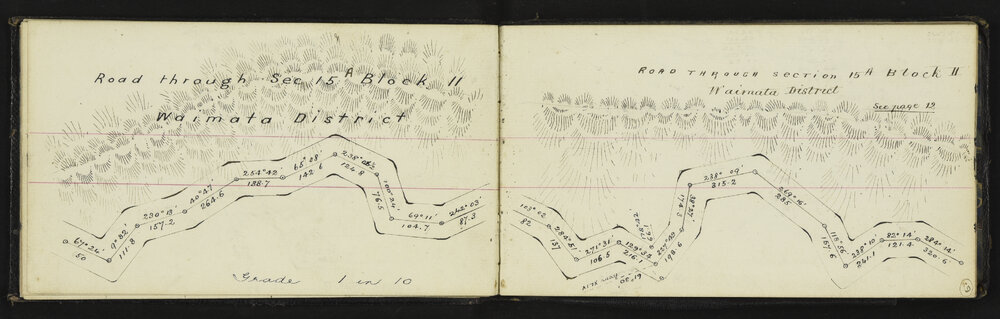 Road through Sec 15 A Block II
Waimata District
67° 24'
50
9° 32'
111.8
230° 13'
157.2
40° 47'
264.6
254° 42
138.7
65° 08'
142.6
124.8
76.5
69° 11'
104.7
242° 03'
87.3
Grade 1 in 10
ROAD THROUGH SECTION 15 A Block II
Waimata District
See page 12
103° 02
82
284° 51'
137
271° 31'
106.5
129° 33
216.1
198.6
174.3
238° 09
315.2
269° 16'
285
118° 56
157.6
238° 10'
241.1
82° 14'
121.4
284° 14'
320.6